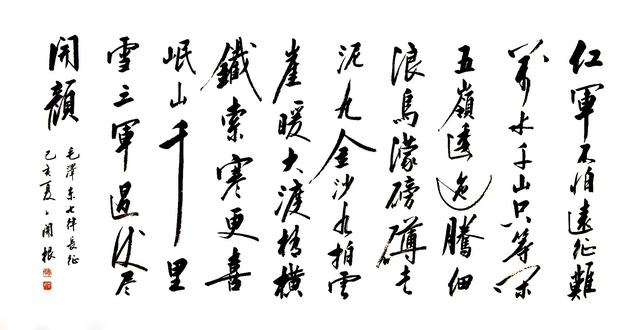 红軍不怕遠征難
萬水千山只等闲
五嶺逶迤騰细
浪烏濛磅礴走
泥丸金沙水拍雲
崖暖大渡橋横
鐵索寒更喜
岷山千里
雪三軍過後尽
開顔
毛澤東七律長征
己亥夏開根